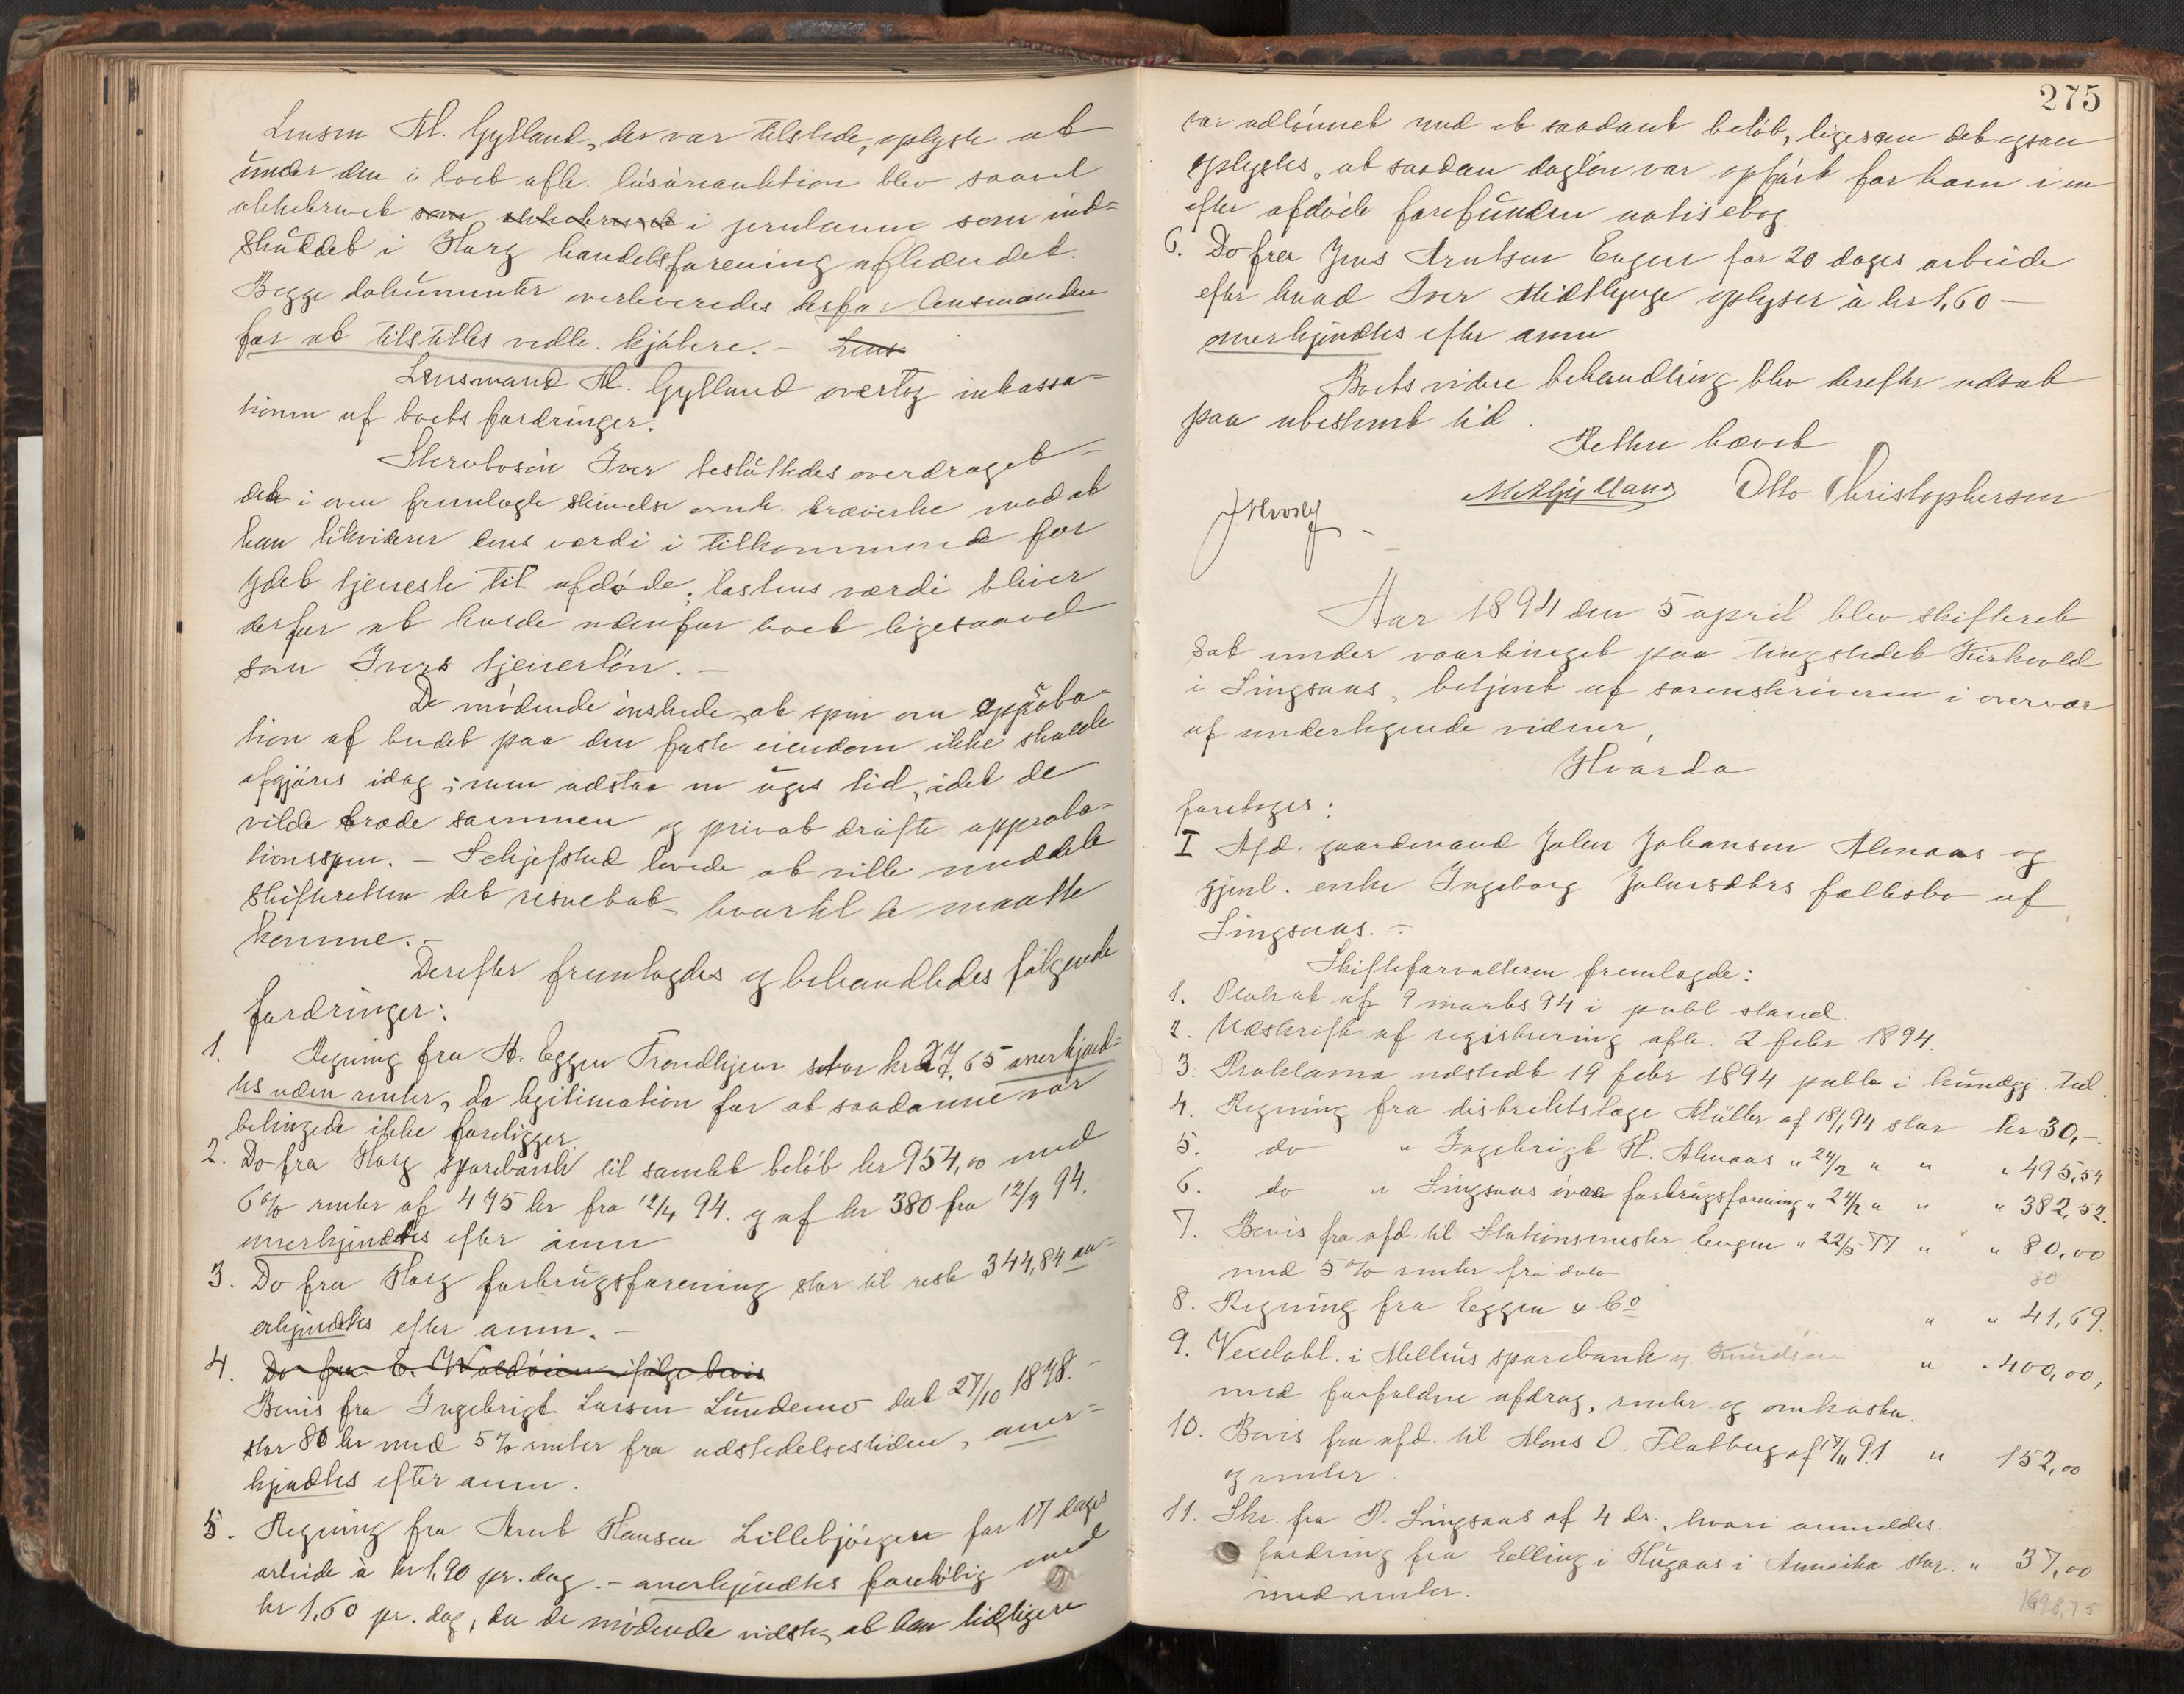 Lensm M. Gylland, der var tilstede, oplyste at
under den i boet afh. løsøreauktion blev saavel
aktiebrevet som aktiebrevet i perulaum som ind-
skuddet i Horg handelsforening afhændet.
Begge dokumenter overleveredes derfor lensmanden
for at tilstilles vedk. kjøbere. - Lens
Lensmand M. Gylland overtog inkassa-
tionen af boets fordringer.
Stervbosøn Iver besluttedes overdraget
det i oven fremlagte skrivelse omh. træverke mod at
han likviderer dens værdi i tilkommende for
ydet tjeneste til afdøde, lastens værdi bliver
derfor at holde udenfor boet ligesaavel
som Ivers tjenerløn. -
De mødende ønskede, at spm om approba-
tion af budet paa den faste eiendom ikke skulde
afgjøres idag, men udstaa en uges tid, idet de
vilde træde sammen og privat drøfte approba-
tionsspm. - Schjefstad lovede at ville meddele
skifteretten det resultat, hvortil de maatte
komme. -
Derefter fremlagdes og behandledes følgende
fordringer:
1. Regning fra H. Eggen Trondhjem stor kr 27,65 anerkjend-
tes uden renter, da legitimation for at saadanne var
betingede ikke foreligger
2. Do fra Horg sparebank til samlet beløb kr 954,00 med
6% renter af 475 kr fra 12/4 94. og af kr 380 fra 12/9 94.
anerkjendtes efter anm
3. Do fra Horg forbrugsforening stor til rest 344,84 an-
erkjendtes efter anm. -
4. Do fra E. Woldøien ifølge bevis
Bevis fra Ingebrigt Larsen Lundemo dat 27/10 1878. -
stor 80 kr med 5% renter fra udstedelsestiden, aner-
kjendtes efter anm.
5. Regning fra Arnt Hansen Lillebjørgen for 17 dages
arbeide à kr 1,90 pr. dag. - anerkjendtes foreløbig med
kr 1,60 pr. dag, da de mødende vidste, at han tidligere
275
var udlønnet med et saadant beløb, ligesom det ogsaa
oplystes, at saadan dagløn var opført for ham i en
efter afdøde forefunden notisebog.
6. Do fra Jens Arntsen Engen for 20 dages arbeide
efter hvad Iver Midtlynge oplyser à kr 1,60 -
anerkjendtes efter anm
Boets videre behandling blev derefter udsat
paa ubestemt tid.
Retten hævet
M Gylland Otto Christophersen
Aar 1894 den 5 april blev skifteret
sat under vaartinget paa tingstedet Kirkvold
i Singsaas, betjent af sorenskriveren i overvær
af undertegnede vidner,
Hvorda
foretoges:
I Afd. gaardmand John Johansen Almaas og
gjenl. enke Ingeborg Johnsdtrs fællesbo af
Singsaas. -
Skifteforvalteren fremlagde:
1. Plakat af 9 marts 94 i publ stand.
2. Udskrift af registrering afh. 2 febr 1894.
3. Proklama udstedt 19 febr 1894 publ i kundgj. tid.
4. Regning fra distriktslæge Müller af 18/1 94 stor kr 30,-.
5. do " Ingebrigt H. Almaas " 24/2 " " " 495,54
6. do " Singsaas øvre forbrugsforening " 24/2 " " " 382,52.
7. Bevis fra afd. til Stationsmester Engen " 22/5 77 " " 80,00
med 5% renter fra dato
80
8. Regning fra Eggen & Co " " 41,69.
9. Vexelobl. i Melhus sparebank og Knudsen " " 400,00,
med forfaldne afdrag, renter og omkostn.
10. Bevis fra afd. til Mons O. Flatberg af 17/11 91 " 152,00
og renter.
11. Skr. fra P. Singsaas af 4 ds., hvori anmeldes
fordring fra Elling i Hugaas i Amerika stor " 37,00
med renter.
1698,75